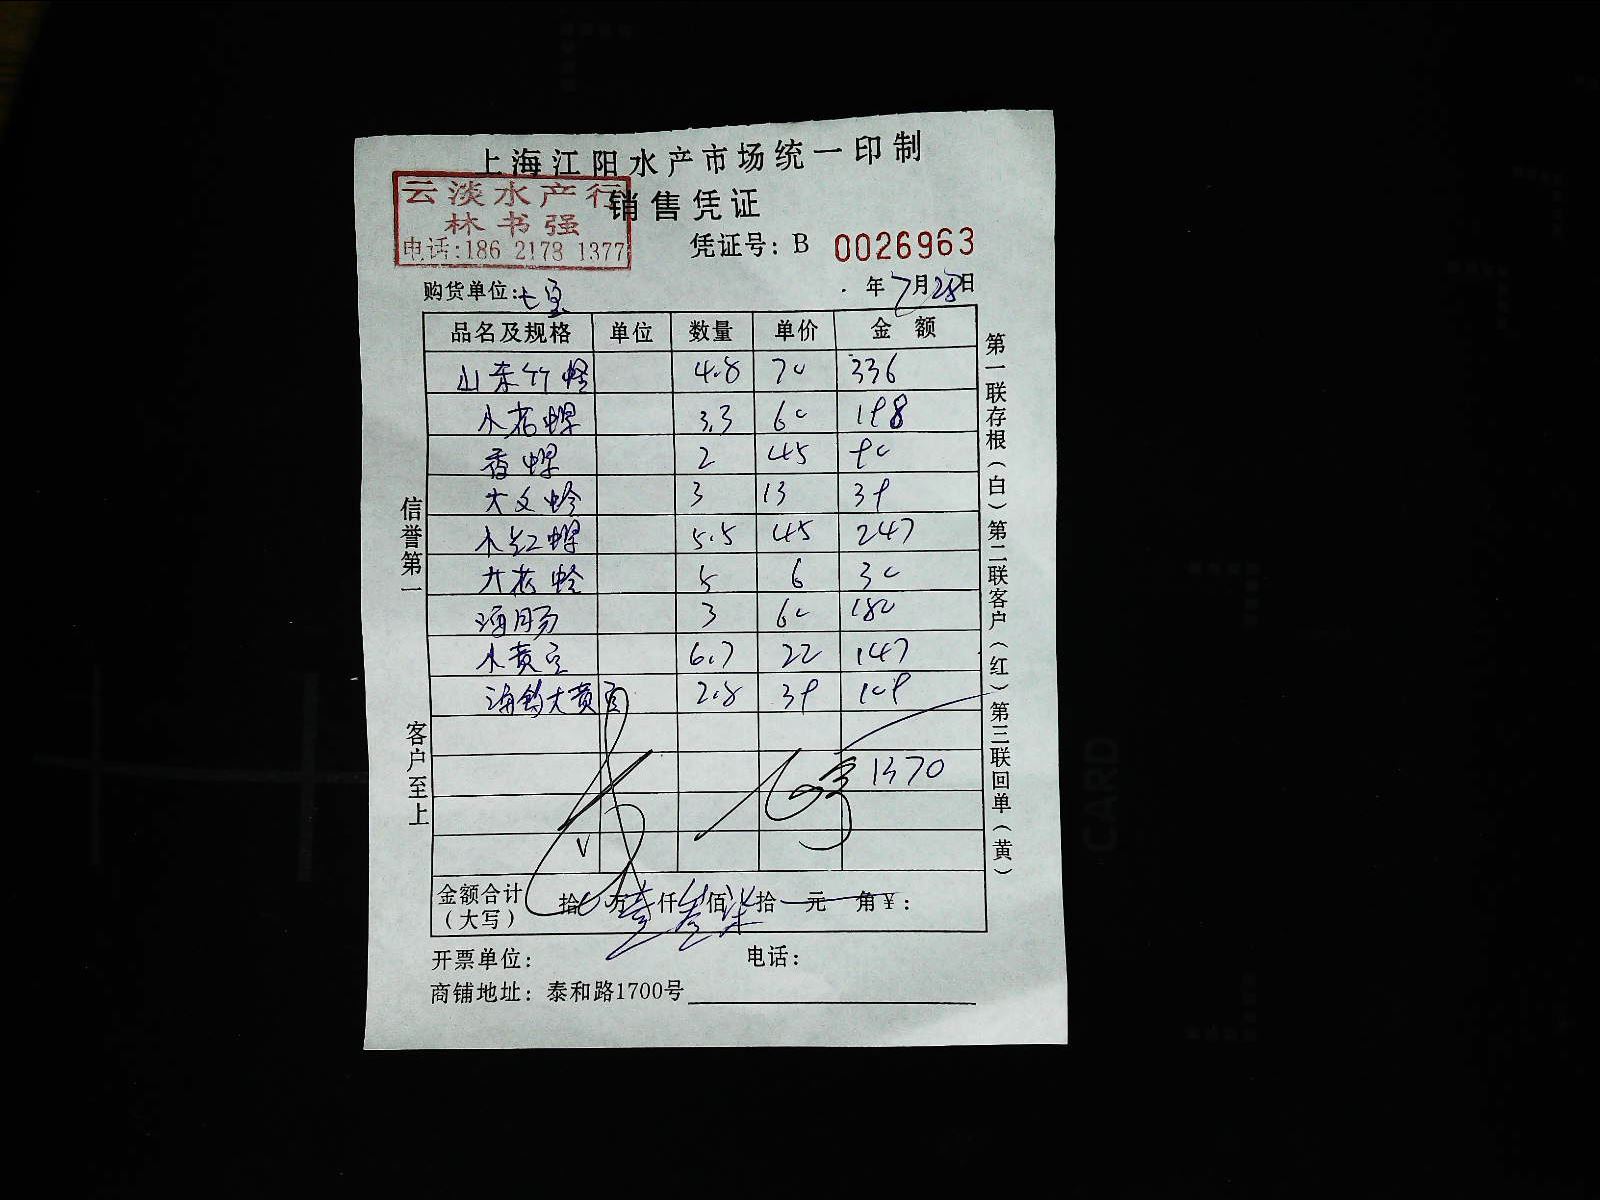 上海江阳水产市场统一印制
云淡水产行
销售凭证
林书强
电话:186 2178 1377
凭证号: B 0026963
购货单位:七宝 年7月28日
品名及规格 单位 数量 单价 金额
山东竹蛏 4.8 70 336
小花螺 3.3 60 198
香螺 2 45 90
大文蛤 3 13 39
小红螺 5.5 45 247
大花蛤 5 6 30
海肠 3 60 180
小黄鱼 6.7 22 147
海钓大黄鱼 2.8 39 109
1370
金额合计(大写) 拾 万壹仟叁佰柒拾 元 角¥:
开票单位: 电话:
商铺地址: 泰和路1700号
信誉第一
客户至上
第一联存根(白)第二联客户(红)第三联回单(黄)
CARD